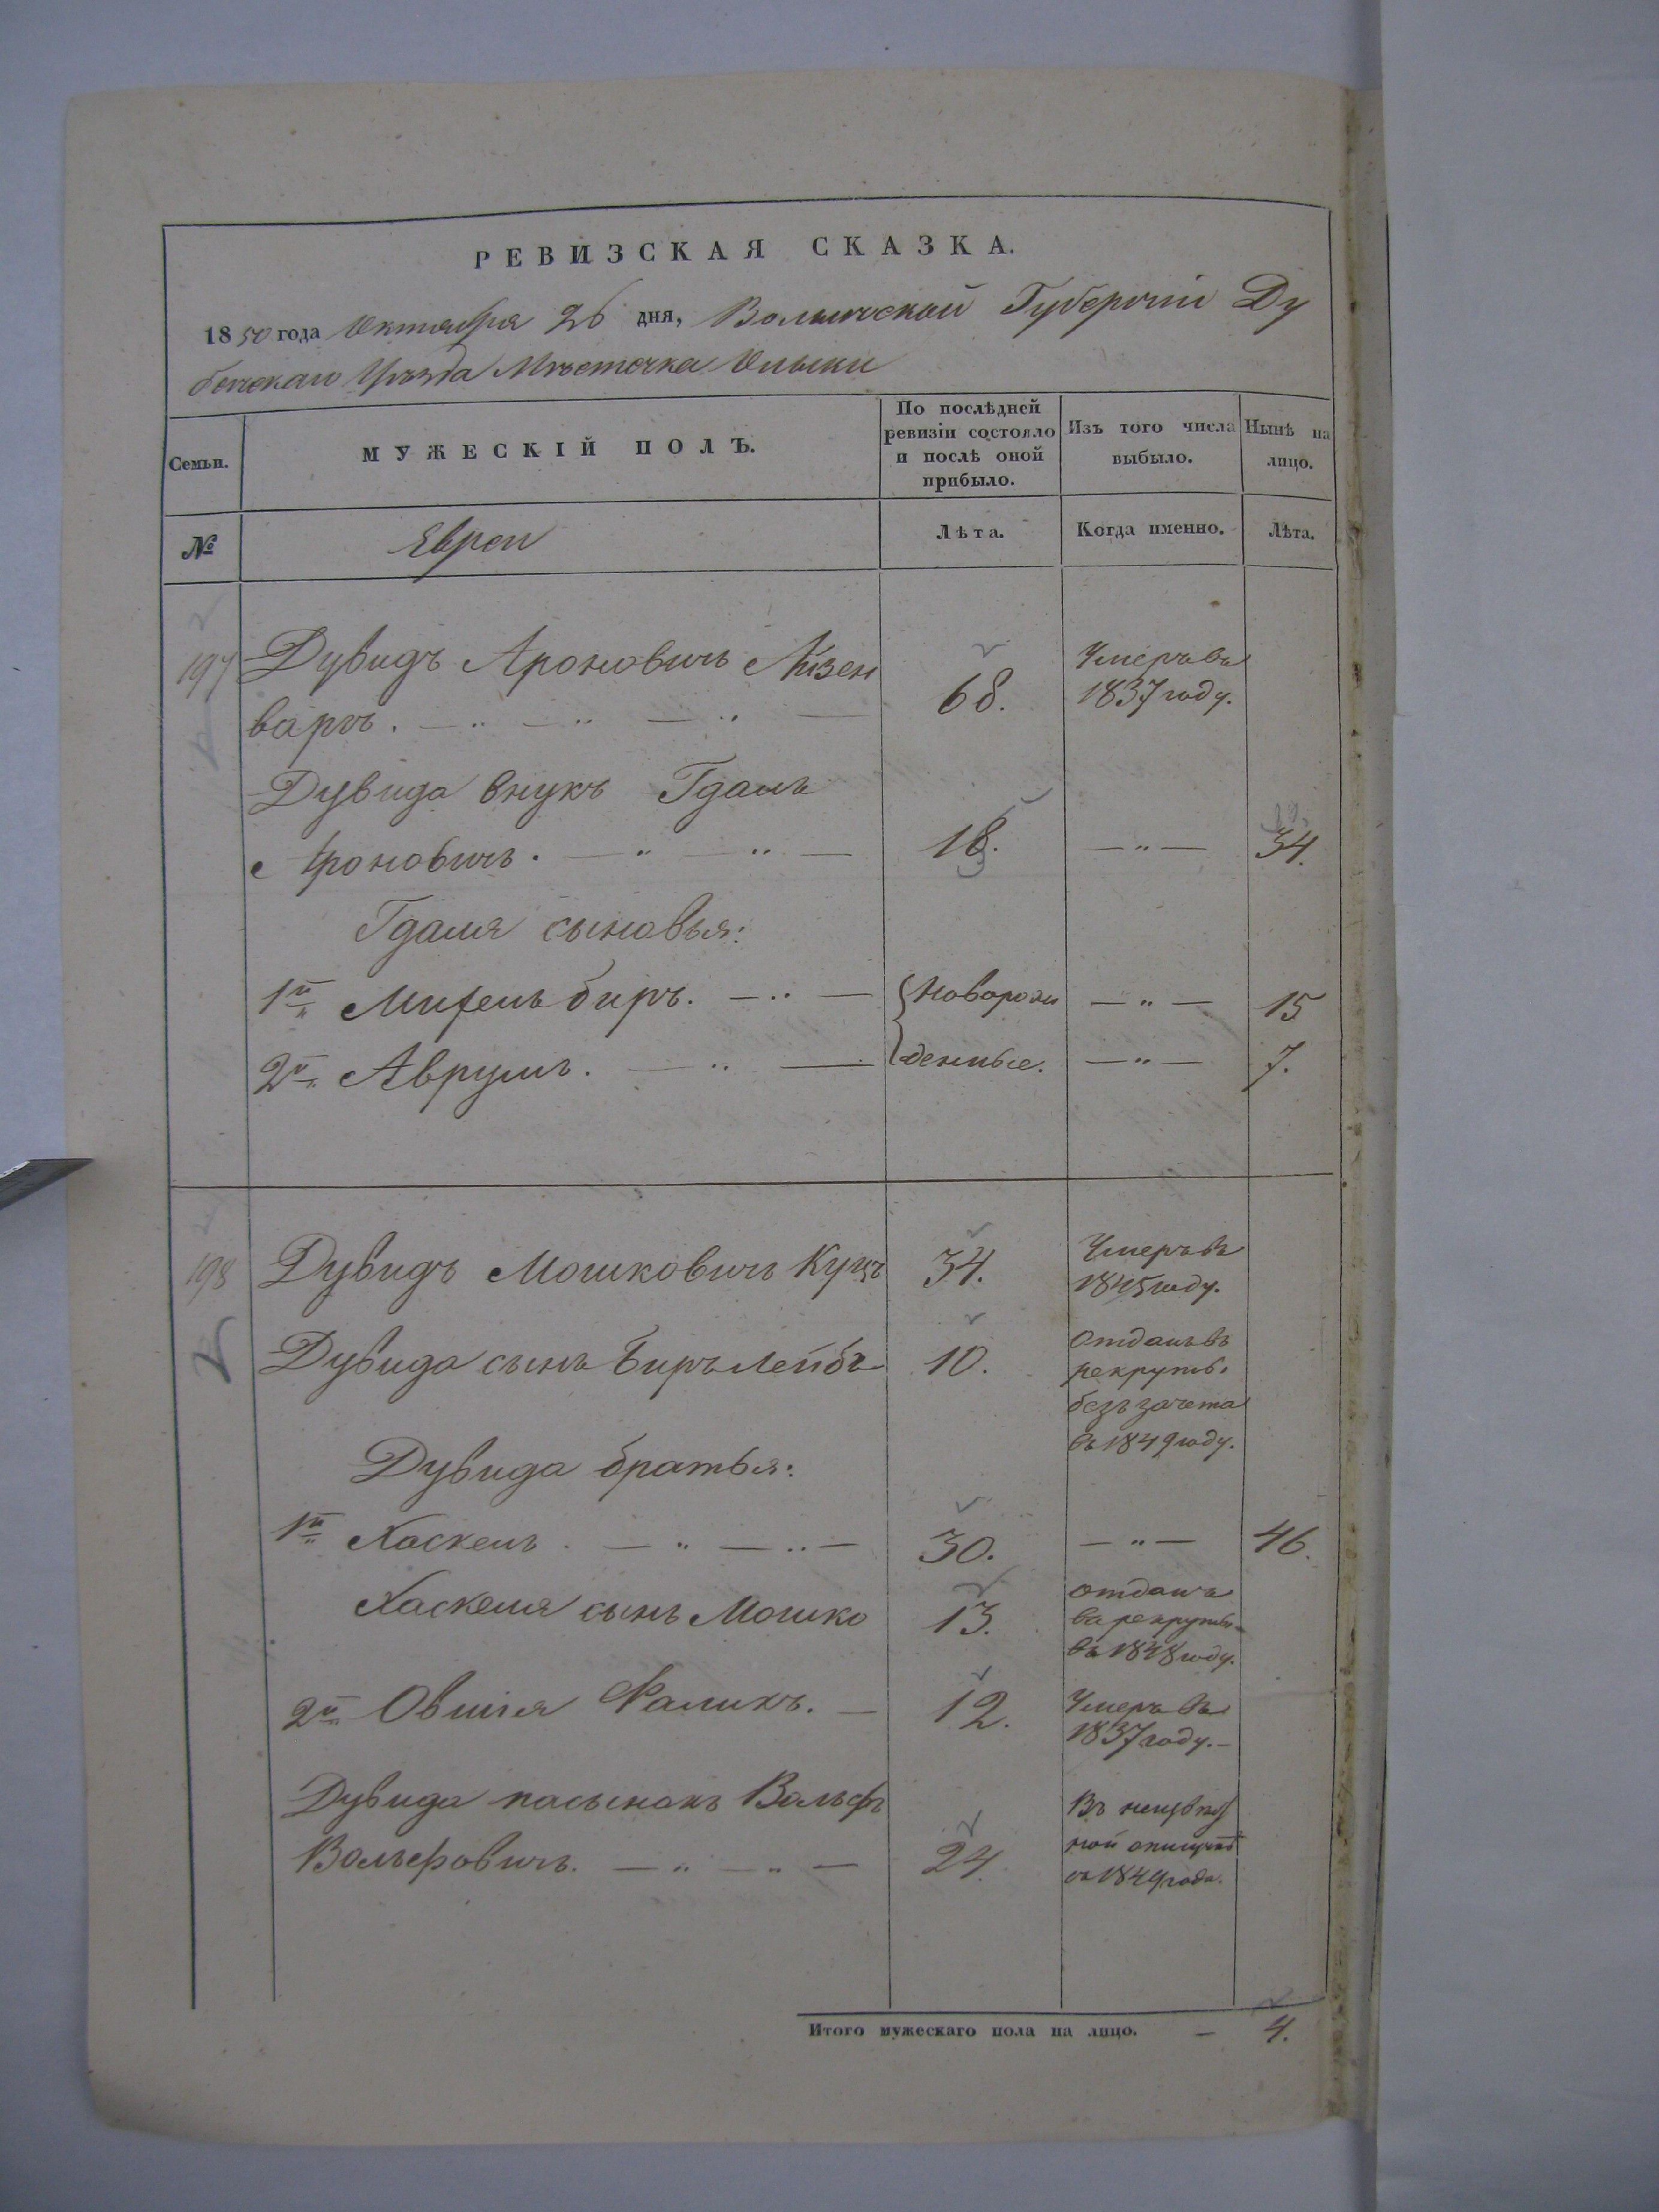 РЕВИЗСКАЯ СКАЗКА.
1850 года Октября 26 дня, Волынской Губерніи Ду
бенскаго Уѣзда Мѣстечка Олыки
Семьи.
МУЖЕСКІЙ ПОЛЪ.
По послѣдней
ревизіи состояло
и послѣ оной
прибыло.
Изъ того числа
выбыло.
Нынѣ на
лицо.
№
Евреи
Лѣта.
Когда именно.
Лѣта.
197 Дувидъ Ароновичъ Айзен
варгъ. 68. Умеръ въ
1837 году.
Дувида внукъ Гдаль
Ароновичъ. 18. 34.
Гдаля сыновья:
1й Михель биръ. Новорож 15
2й Аврумъ. денные. 7.
198 Дувидъ Мошковичъ Куцъ 34. Умеръ въ
1845 году.
Дувида сынъ Биръ Лейбъ 10. Отданъ въ
рекруты.
безъ зачета
въ 1849 году.
Дувида братья:
1й Хаскель. 30. 46.
Хаскеля сынъ Мошко 13. отданъ
въ рекруты
въ 1848 году.
2й Овшія Фаликъ. 12. Умеръ въ
1837 году.
Дувида пасынокъ Вольфъ
Вольфовичъ. 24. Въ
ной отлучкѣ
съ 1849 года.
Итого мужескаго пола на лицо. 4.